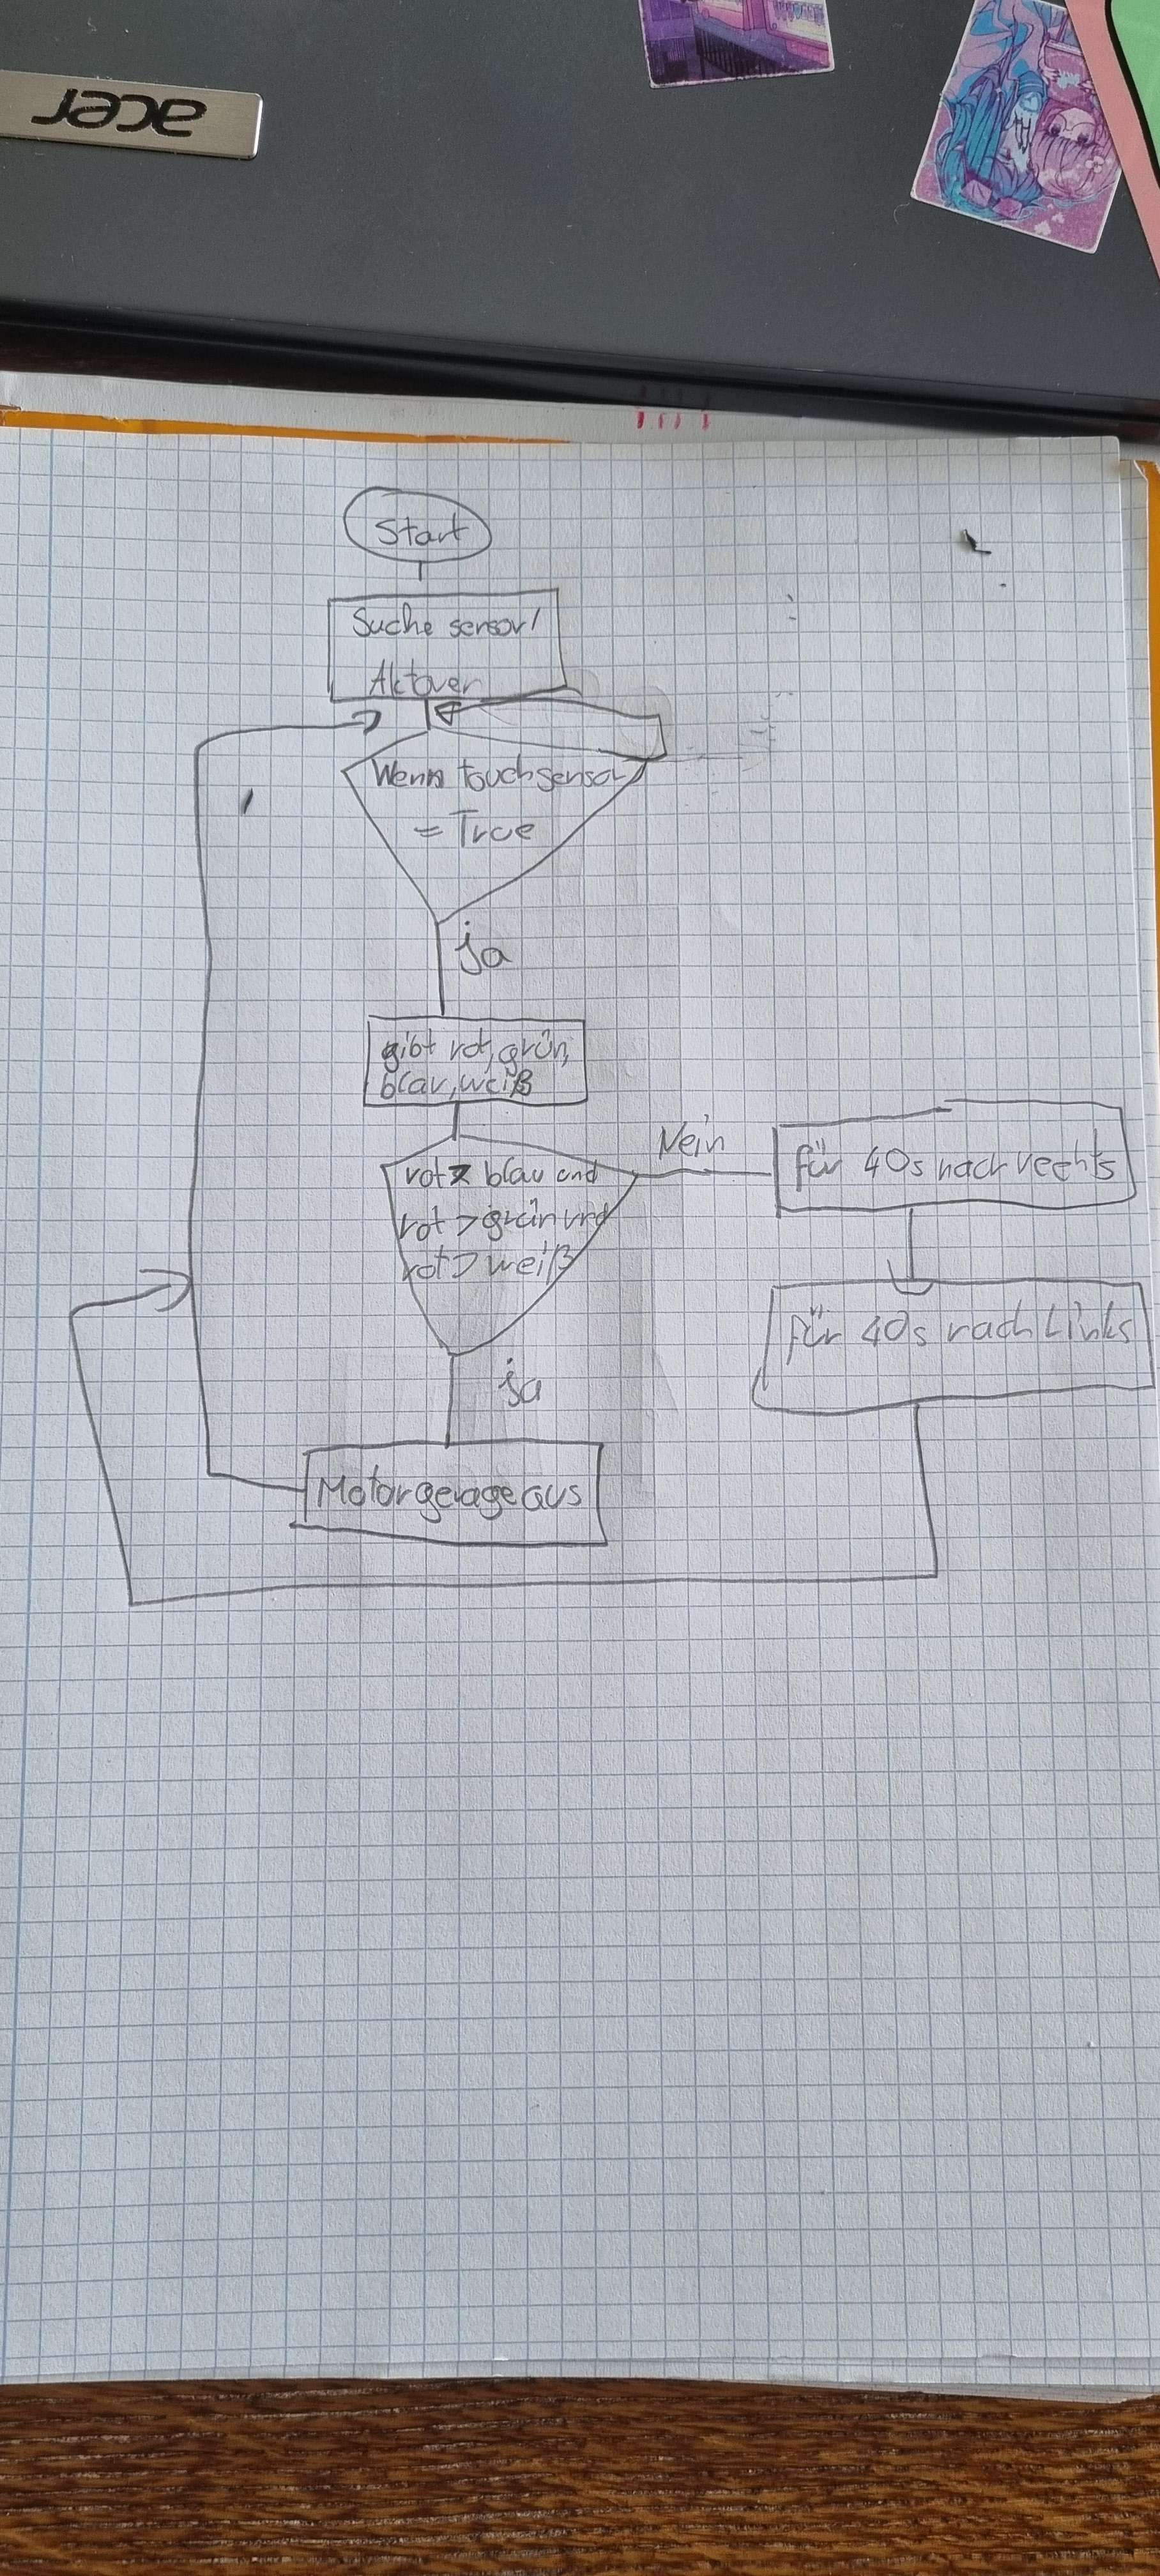 acer
Start
Suche sensor/
Aktover
Wenn touchsensor
= True
ja
gibt rot, grün,
blau, weiß
rot > blau und
rot > grün und
rot > weiß
Nein
für 40s nach rechts
für 40s nach Links
ja
Motor gerage aus